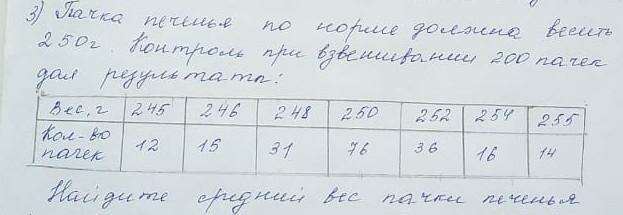 3) Пачка печенья по норме должна весить
250г. Контроль при взвешивании 200 пачек
дал результаты:
Вес, г 245 246 248 250 252 254 255
Кол-во пачек 12 15 31 76 36 16 14
Найдите средний вес пачки печенья